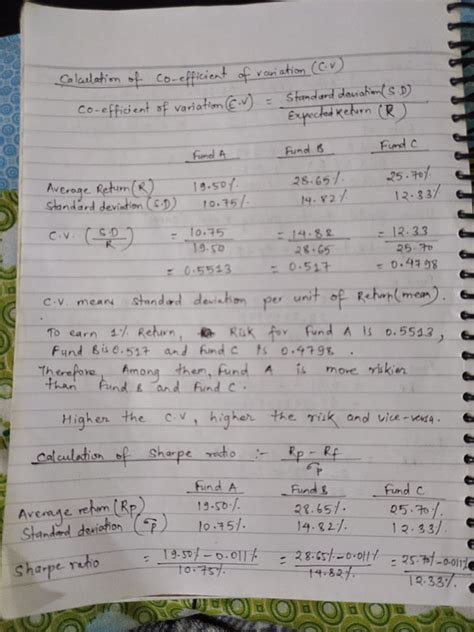 Calculation of Co-efficient of variation (C.V)
Co-efficient of variation (C.V) = Standard deviation (S.D) / Expected Return (R)
Fund A Fund B Fund C
Average Return (R) 19.50% 28.65% 25.70%
Standard deviation (S.D) 10.75% 14.82% 12.33%
C.V. (S.D / R) = 10.75 / 19.50 = 14.82 / 28.65 = 12.33 / 25.70
= 0.5513 = 0.517 = 0.4798
C.V. means standard deviation per unit of Return (mean).
To earn 1% Return, Risk for Fund A is 0.5513,
Fund B is 0.517 and Fund C is 0.4798.
Therefore, Among them, Fund A is more riskier
than Fund B and Fund C.
Higher the C.V, higher the risk and vice-versa.
Calculation of Sharpe ratio :- Rp - Rf / σp
Fund A Fund B Fund C
Average return (Rp) 19.50% 28.65% 25.70%
Standard deviation (σp) 10.75% 14.82% 12.33%
Sharpe ratio = 19.50 - 0.011% / 10.75% = 28.65% - 0.011% / 14.82% = 25.70% - 0.011% / 12.33%